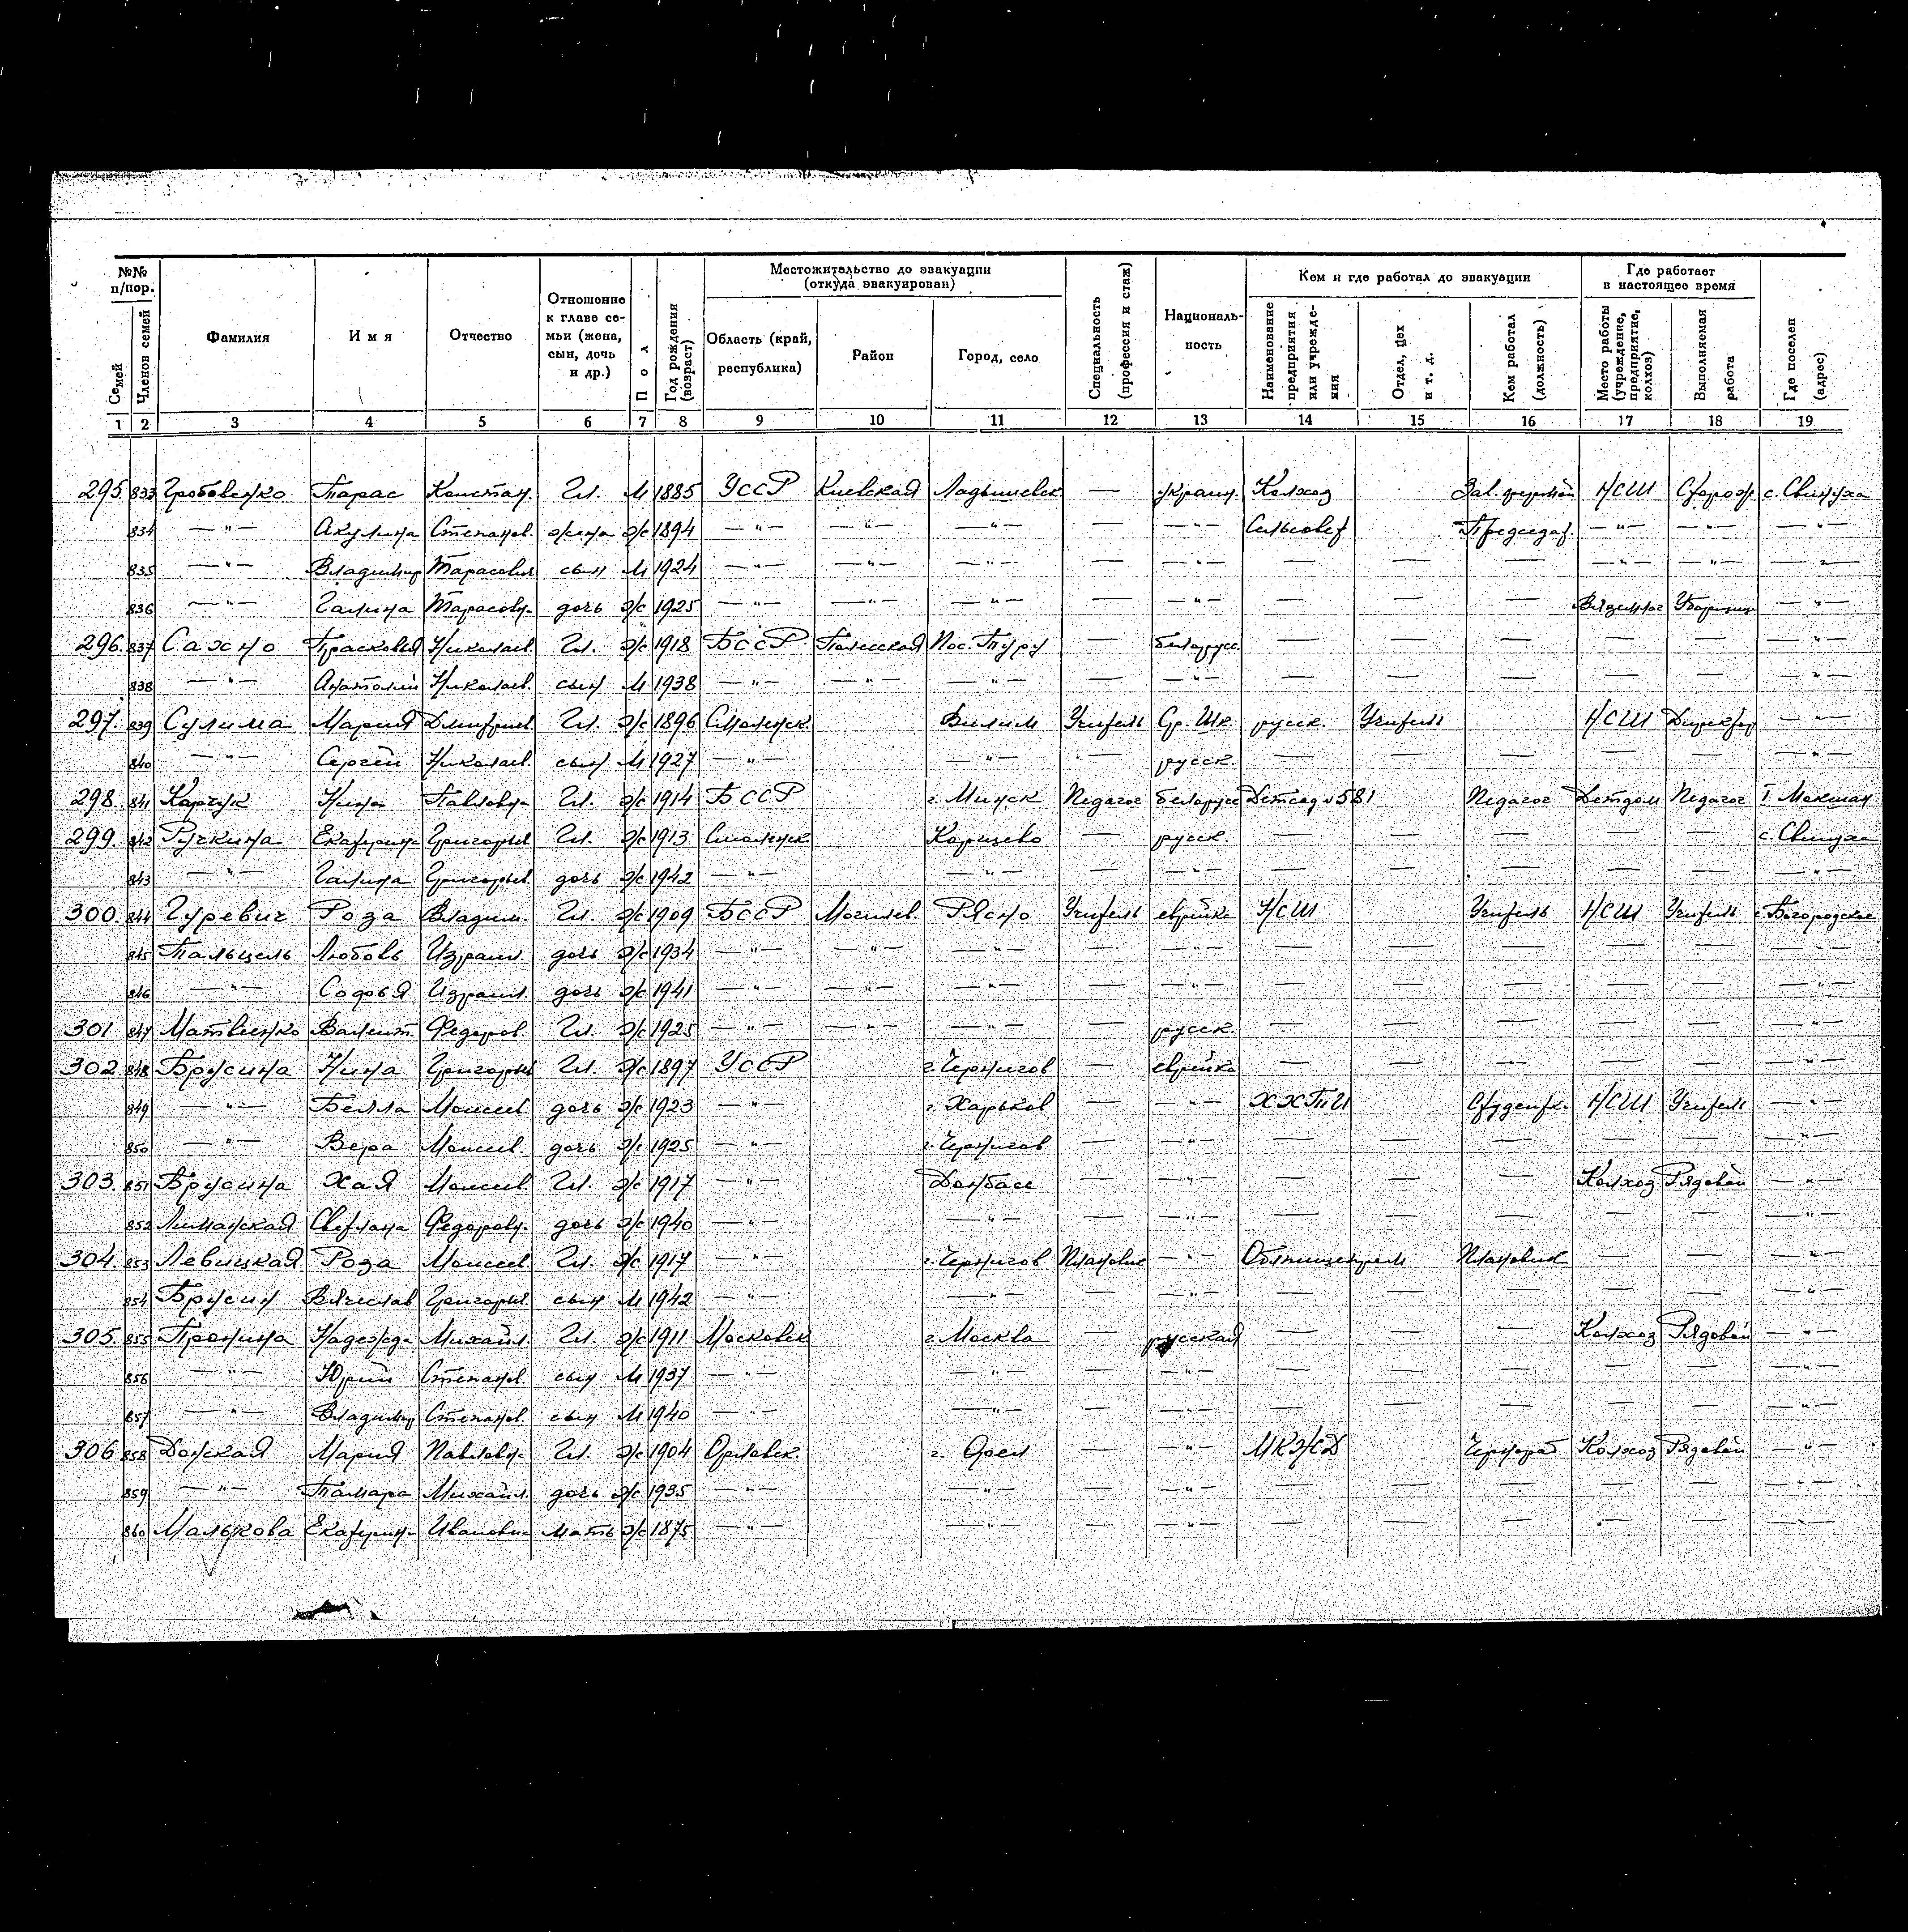 №№ п/пор. Местожительство до эвакуации (откуда эвакуирован) Кем и где работал до эвакуации Где работает в настоящее время
Семей Членов семей Фамилия Имя Отчество Отношение к главе семьи (жена, сын, дочь и др.) Пол Год рождения (возраст) Область (край, республика) Район Город, село Специальность (профессия и стаж) Националь-ность Наименование предприятия или учрежде-ния Отдел, цех и т. д. Кем работал (должность) Место работы (учреждение, предприятие, колхоз) Выполняемая работа Где поселен (адрес)
1 2 3 4 5 6 7 8 9 10 11 12 13 14 15 16 17 18 19
295. 833 Гробовенко Тарас Констан. Гл. М 1885 УССР Киевская Ладышевск — украин. Колхоз Зав. фермой НСШ Сторож с. Свинуха
834 —"— Акулина Степанов. жена ж 1894 —"— —"— —"— — —"— Сельсовет Председат. —"— —"— —"—
835 —"— Владимир Тарасович сын М 1924 —"— —"— —"— — —"— — — — —"— —"— —"—
836 —"— Галина Тарасовн. дочь ж 1925 —"— —"— —"— — —"— — — — Уборщиц. —"—
296. 837 Сахно Прасковья Николаев. Гл. ж 1918 БССР Полесская Пос. Туру — беларусс. — — — — — —"—
838 —"— Анатолий Николаев. сын М 1938 —"— —"— —"— — —"— — — — — — —"—
297. 839 Сулима Мария Дмитриев. Гл. ж 1896 Смоленск. Учитель Ср. Шк. русск. Учитель НСШ Директор —"—
840 —"— Сергей Николаев. сын М 1927 —"— —"— русск. — — — — — —"—
298. 841 Карчук Нина Павловн. Гл. ж 1914 БССР г. Минск Педагог беларусс Детсад №581 Педагог Детдом Педагог I Мокшан
299. 842 Ручкина Екатерина Григорьев. Гл. ж 1913 Смоленск. — русск. — — — — — с. Свинуха
843 —"— Галина Григорьев. дочь ж 1942 —"— —"— — —"— — — — — — —"—
300. 844 Гуревич Роза Владим. Гл. ж 1909 БССР Могилев. Рясно Учитель еврейка НСШ Учитель НСШ Учитель с. Богородское
845 Пальцель Любовь Израил. дочь ж 1934 —"— —"— —"— — —"— — — — — — —"—
846 —"— Софья Израил. дочь ж 1941 —"— —"— —"— — —"— — — — — — —"—
301 847 Матвиенко Валент. Федоров. Гл. ж 1925 —"— —"— —"— — русск. — — — — — —"—
302. 848 Брусина Нина Григорьев. Гл. ж 1897 УССР г. Чернигов — еврейка — — — — — —"—
849 —"— Белла Моисеев. дочь ж 1923 —"— г. Харьков — —"— ХХТИ Студентк. НСШ Учитель —"—
850 —"— Вера Моисеев. дочь ж 1925 —"— г. Чернигов — —"— — — — — — —"—
303. 851 Брусина Хая Моисеев. Гл. ж 1917 —"— Донбасс — —"— — — — Колхоз Рядовой —"—
852 Лиманская Светлана Федоровн. дочь ж 1940 —"— —"— — —"— — — — — — —"—
304. 853 Левицкая Роза Моисеев. Гл. ж 1917 —"— г. Чернигов Плановик —"— Облпищепром Плановик — — —"—
854 Брусин Вячеслав Григорьев. сын М 1942 —"— —"— — —"— — — — — — —"—
305. 855 Пронина Надежда Михайл. Гл. ж 1911 Московск. г. Москва — русская — — — Колхоз Рядовой —"—
856 —"— Юрий Степанов. сын М 1937 —"— —"— — —"— — — — — — —"—
857 —"— Владимир Степанов. сын М 1940 —"— —"— — —"— — — — — — —"—
306 858 Донская Мария Павловн. Гл. ж 1904 Орловск. г. Орел — —"— МКЖД Колхоз Рядовой —"—
859 —"— Тамара Михайл. дочь ж 1935 —"— —"— — —"— — — — — — —"—
860 Малькова Екатерин. Ивановн. мать ж 1875 —"— —"— — —"— — — — — — —"—